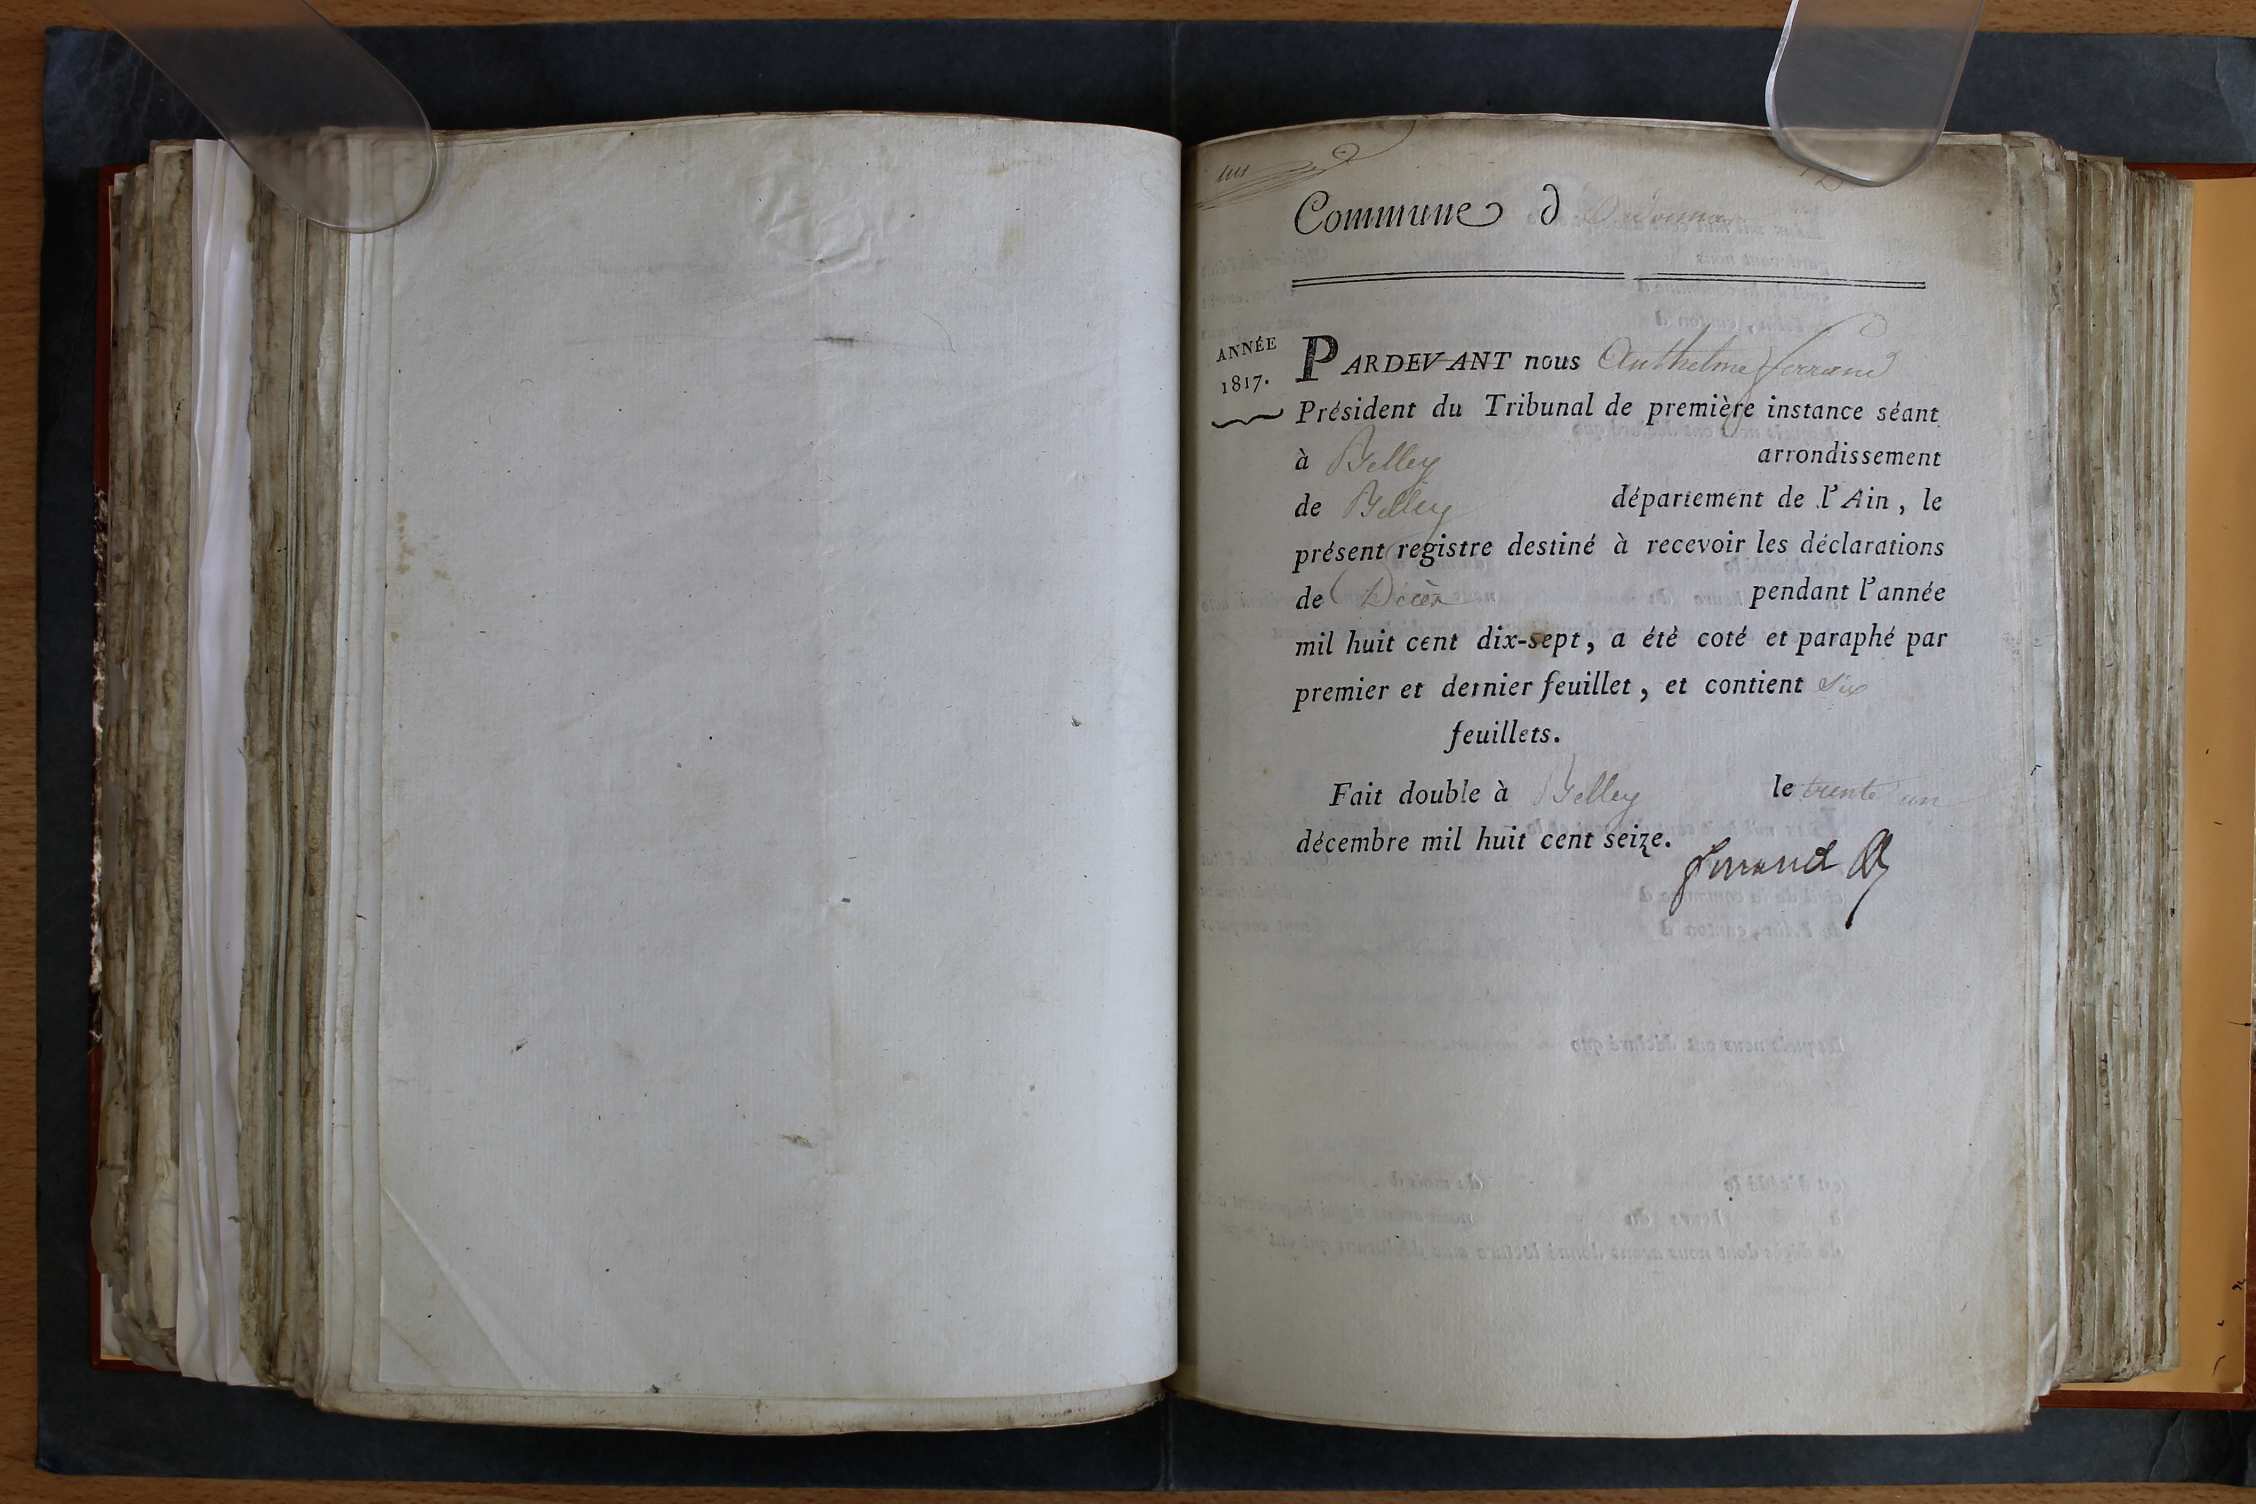 Commune d
ANNÉE
1817.
PARDEVANT nous Anthelme ferrand
Président du Tribunal de première instance séant
à Belley arrondissement
de Belley département de l'Ain, le
présent registre destiné à recevoir les déclarations
de Décès pendant l'année
mil huit cent dix-sept, a été coté et paraphé par
premier et dernier feuillet, et contient six
feuillets.
Fait double à Belley le trente un
décembre mil huit cent seize.
ferrand